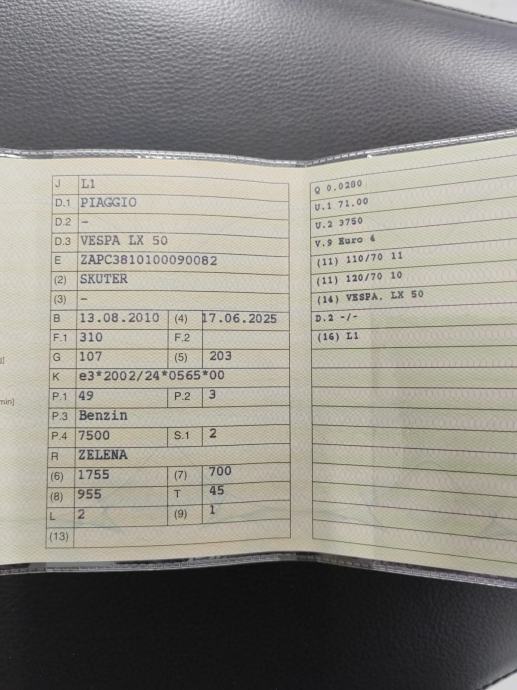 J L1
D.1 PIAGGIO
D.2 -
D.3 VESPA LX 50
E ZAPC3810100090082
(2) SKUTER
(3) -
B 13.08.2010 (4) 17.06.2025
F.1 310 F.2
G 107 (5) 203
K e3*2002/24*0565*00
P.1 49 P.2 3
P.3 Benzin
P.4 7500 S.1 2
R ZELENA
(6) 1755 (7) 700
(8) 955 T 45
L 2 (9) 1
(13)
Q 0.0280
U.1 71.00
U.2 3750
V.9 Euro 4
(11) 110/70 11
(11) 120/70 10
(14) VESPA, LX 50
D.2 -/-
(16) L1
min]